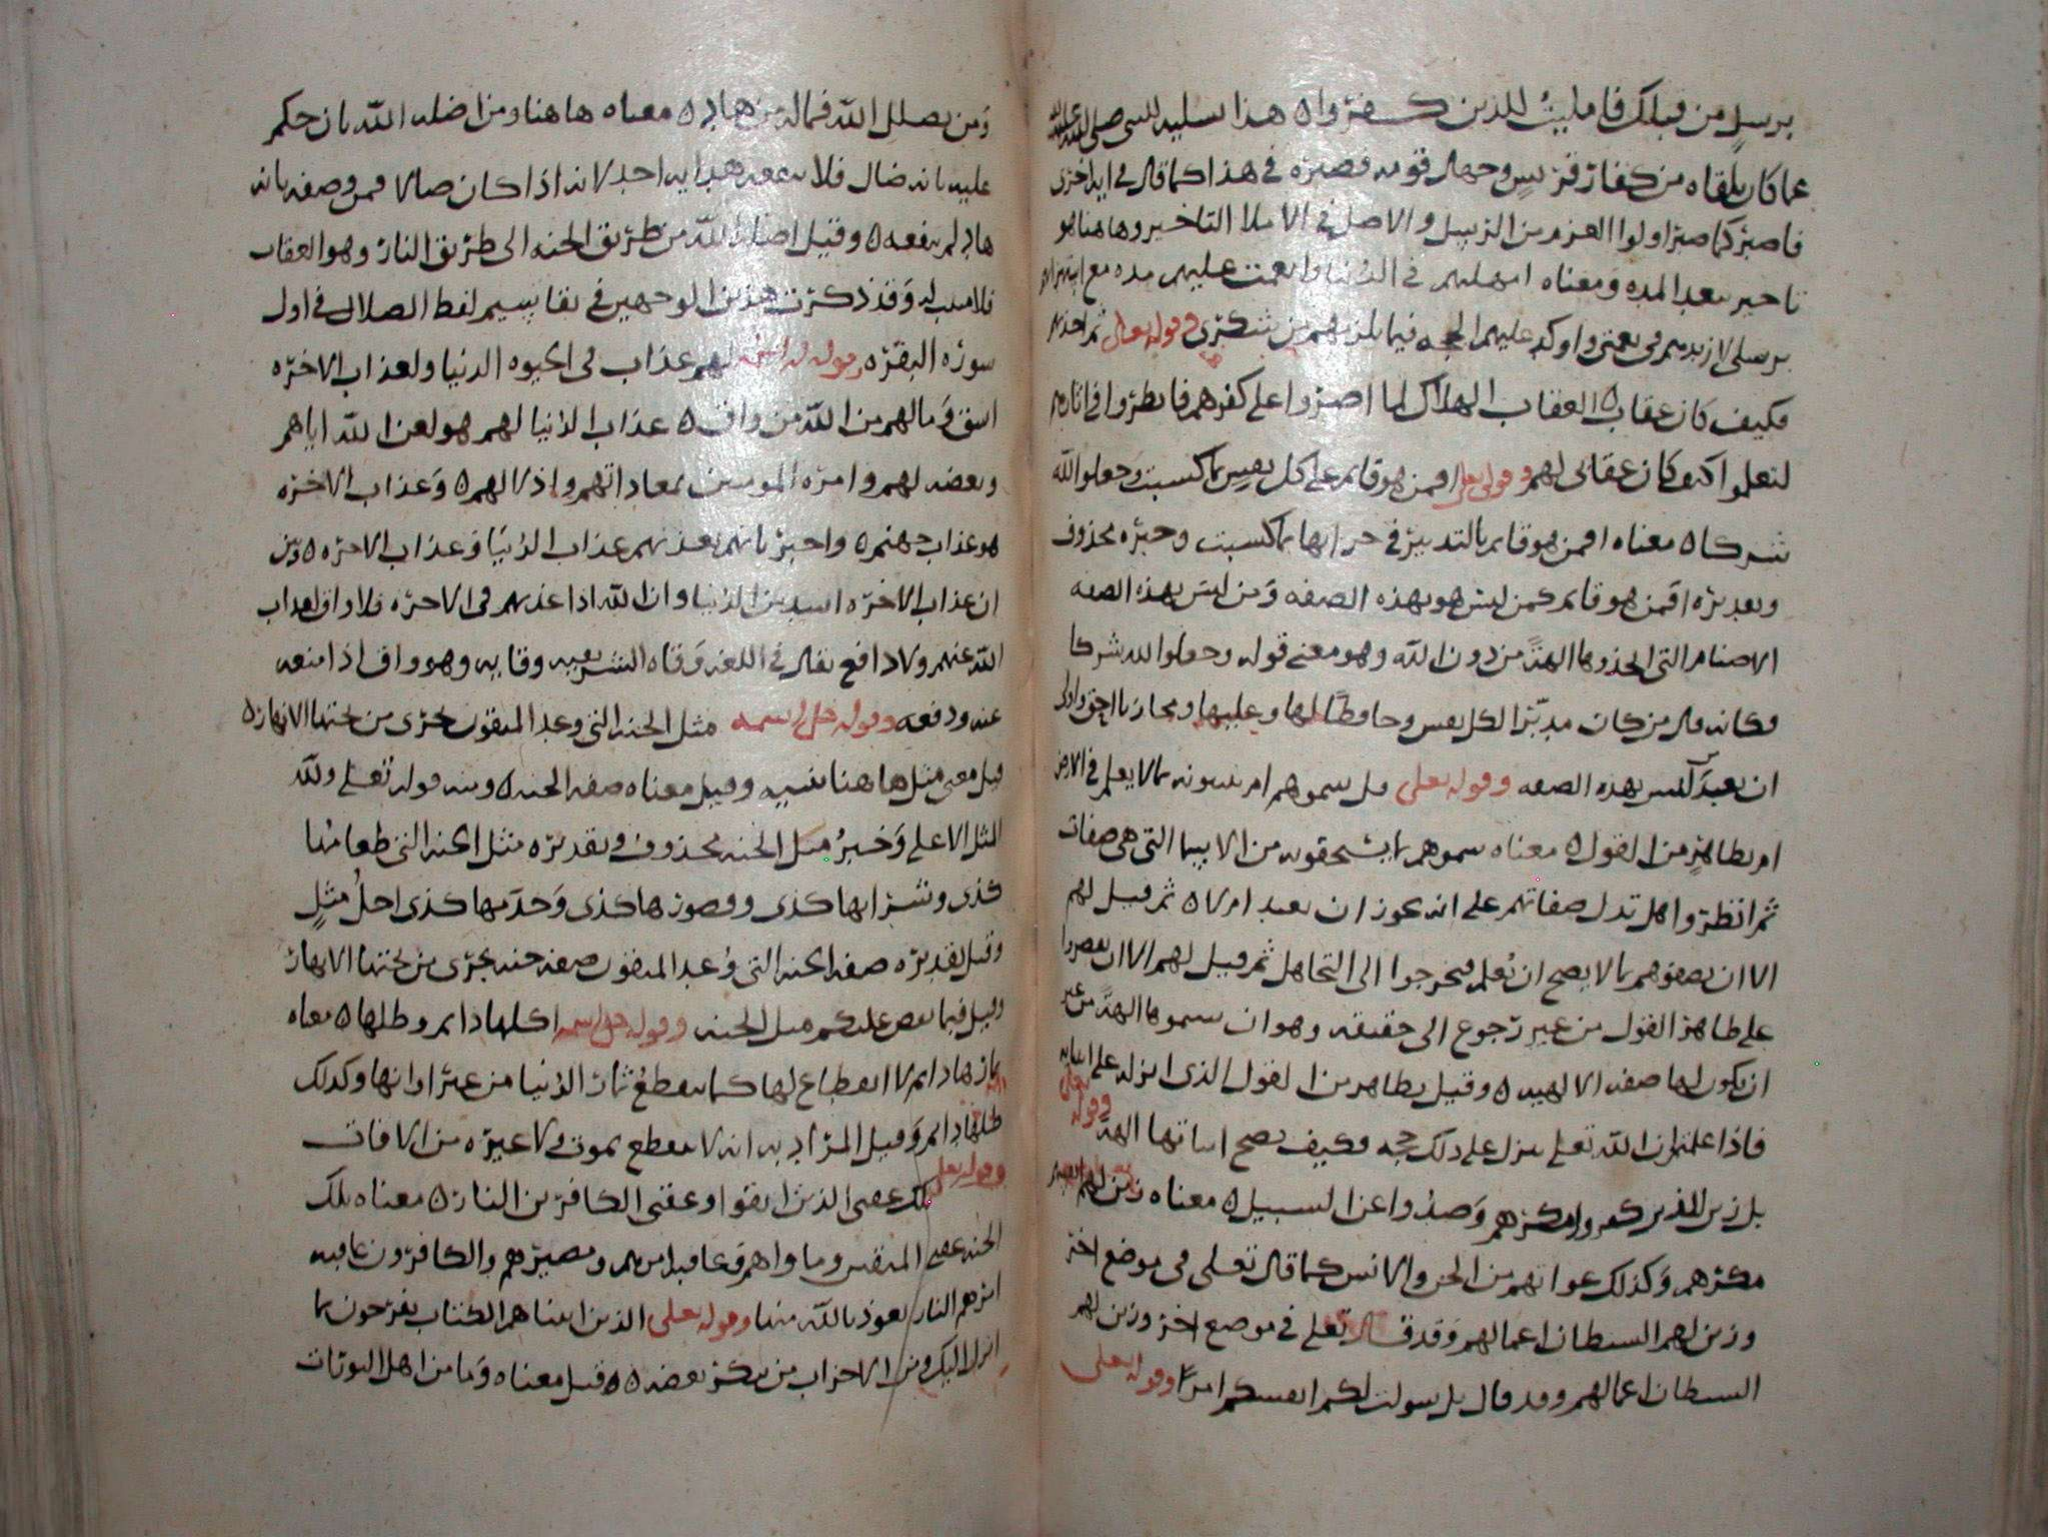 برسل من قبلك فامليت للذين كفروا ه هذا تسليه للنبي صلى الله عليه
عما كان يلقاه من كفار قريش وجهال قومه فصبره في هذا كما قال في ايه اخرى
فاصبر كما صبر اولوا العزم من الرسل والاصل في الاملا التاخير وهاهنا هو
تاخير بعد المده ومعناه امهلتهم في الدنيا وانعمت عليهم مده مع استهزاهم
برسلي لازيدهم في نعمتي واوكد عليهم الحجه فيما يلزمهم من شكري وقوله تعالى ثم اخذتهم
فكيف كان عقاب ه العقاب الهلاك لما اصروا على كفرهم فانظروا في اثارهم
لتعلموا كيف كان عقابي لهم وقوله تعلى افمن هو قايم على كل نفس بما كسبت وجعلوا لله
شركا ه معناه افمن هو قايم بالتدبير في جزايها بما كسبت وخبره محذوف
وتقديره افمن هو قايم كمن ليس هو بهذه الصفه ومن ليس بهذه الصفه
الاصنام التي اتخذوها الهة من دون الله وهو معنى قوله وجعلوا لله شركا
فكانه قال من كان مدبرا لكل نفس وحافظا لها وعليها ومجازيا احق واولى
ان يعبد أمن ليس بهذه الصفه وقوله تعلى قل سموهم ام تنبونه بما لا يعلم في الارض
ام بظاهر من القول ه معناه سموهم بما يستحقونه من الاسما التي هي صفات
ثم انظروا هل تدل صفاتهم على انه يجوز ان تعبد ام لا ه ثم قيل لهم
الا ان يصفوهم بما لا يصح ان يعلم فيخرجوا الى التجاهل ثم قيل لهم الا ان يقصروا
على ظاهر القول من غير رجوع الى حقيقه وهو ان سموها الهة من غير
ان يكون لها صفه الالهيه ه وقيل بظاهر من القول الذي انزله على انبيايه
فاذا علمتم ان الله تعلى لم ينزل على ذلك حجه فكيف يصح اثباتها الهة وقوله تعلى
بل زين للذين كفروا مكرهم وصدوا عن السبيل ه معناه زين لهم انفسهم
مكرهم وكذلك غواتهم من الجن والانس كما قال تعلى في موضع اخر
وزين لهم الشيطان اعمالهم وقد قال تعلى في موضع اخر وزين لهم
الشيطان اعمالهم وقد قال بل سولت لكم انفسكم امرا وقوله تعلى
ومن يضلل الله فما له من هاد ه معناه هاهنا ومن اضله الله بان حكم
عليه بانه ضال فلا ينفعه هدايه احد لانه اذا كان ضالا فمن وصفه بانه
هاد لم ينفعه ه وقيل اضلال الله من طريق الجنه الى طريق النار وهو العقاب
فلا مثيب له وقد ذكرت هذين الوجهين في تقاسيم لفظ الضلال في اول
سوره البقره وقوله لهم عذاب في الحيوه الدنيا ولعذاب الاخره
اشق وما لهم من الله من واق ه عذاب الدنيا لهم هو لعن الله اياهم
وبغضه لهم وامره المومنين بمعاداتهم واذلالهم ه وعذاب الاخره
هو عذاب جهنم ه واخبر بانهم يعذبهم عذاب الدنيا وعذاب الاخره ه وبين
ان عذاب الاخره اشد من الدنيا وان الله اذا عذبهم في الاخره فلا واق لعذاب
الله عنهم ولا دافع يقال في اللغه وقاه الشر يقيه وقايه وهو واق اذا منعه
عنه ودفعه وقوله جل اسمه مثل الجنه التي وعد المتقون تجري من تحتها الانهار ه
قيل معنى مثل هاهنا شبيه وقيل معناه صفه الجنه ه ومنه قوله تعلى ولله
المثل الاعلى وخبر مثل الجنه محذوف وتقديره مثل الجنه التي طعامها
كذى وشرابها كذى وقصورها كذى وخدمها كذى اجل مثل
وقيل تقديره صفه الجنه التي وعد المتقون صفه جنه تجري من تحتها الانهار
وقيل فيما نقص عليكم مثل الجنه وقوله جل اسمه اكلها دايم وظلها ه معناه
ثمارها دايم لا انقطاع لها كما تنقطع ثمار الدنيا من غير اوانها وكذلك
ظلها دايم وقيل المراد به انه لا ينقطع بموت ولا غيره من الافات
وقوله تعلى تلك عقبى الذين اتقوا وعقبى الكافرين النار ه معناه تلك
الجنه عقبى المتقين وماواهم وعاقبه امرهم ومصيرهم والكافرون عاقبه
امرهم النار نعوذ بالله منها وقوله تعلى الذين اتيناهم الكتاب يفرحون بما
انزل اليك ومن الاحزاب من ينكر بعضه ه ه قيل معناه وما من اهل التورات